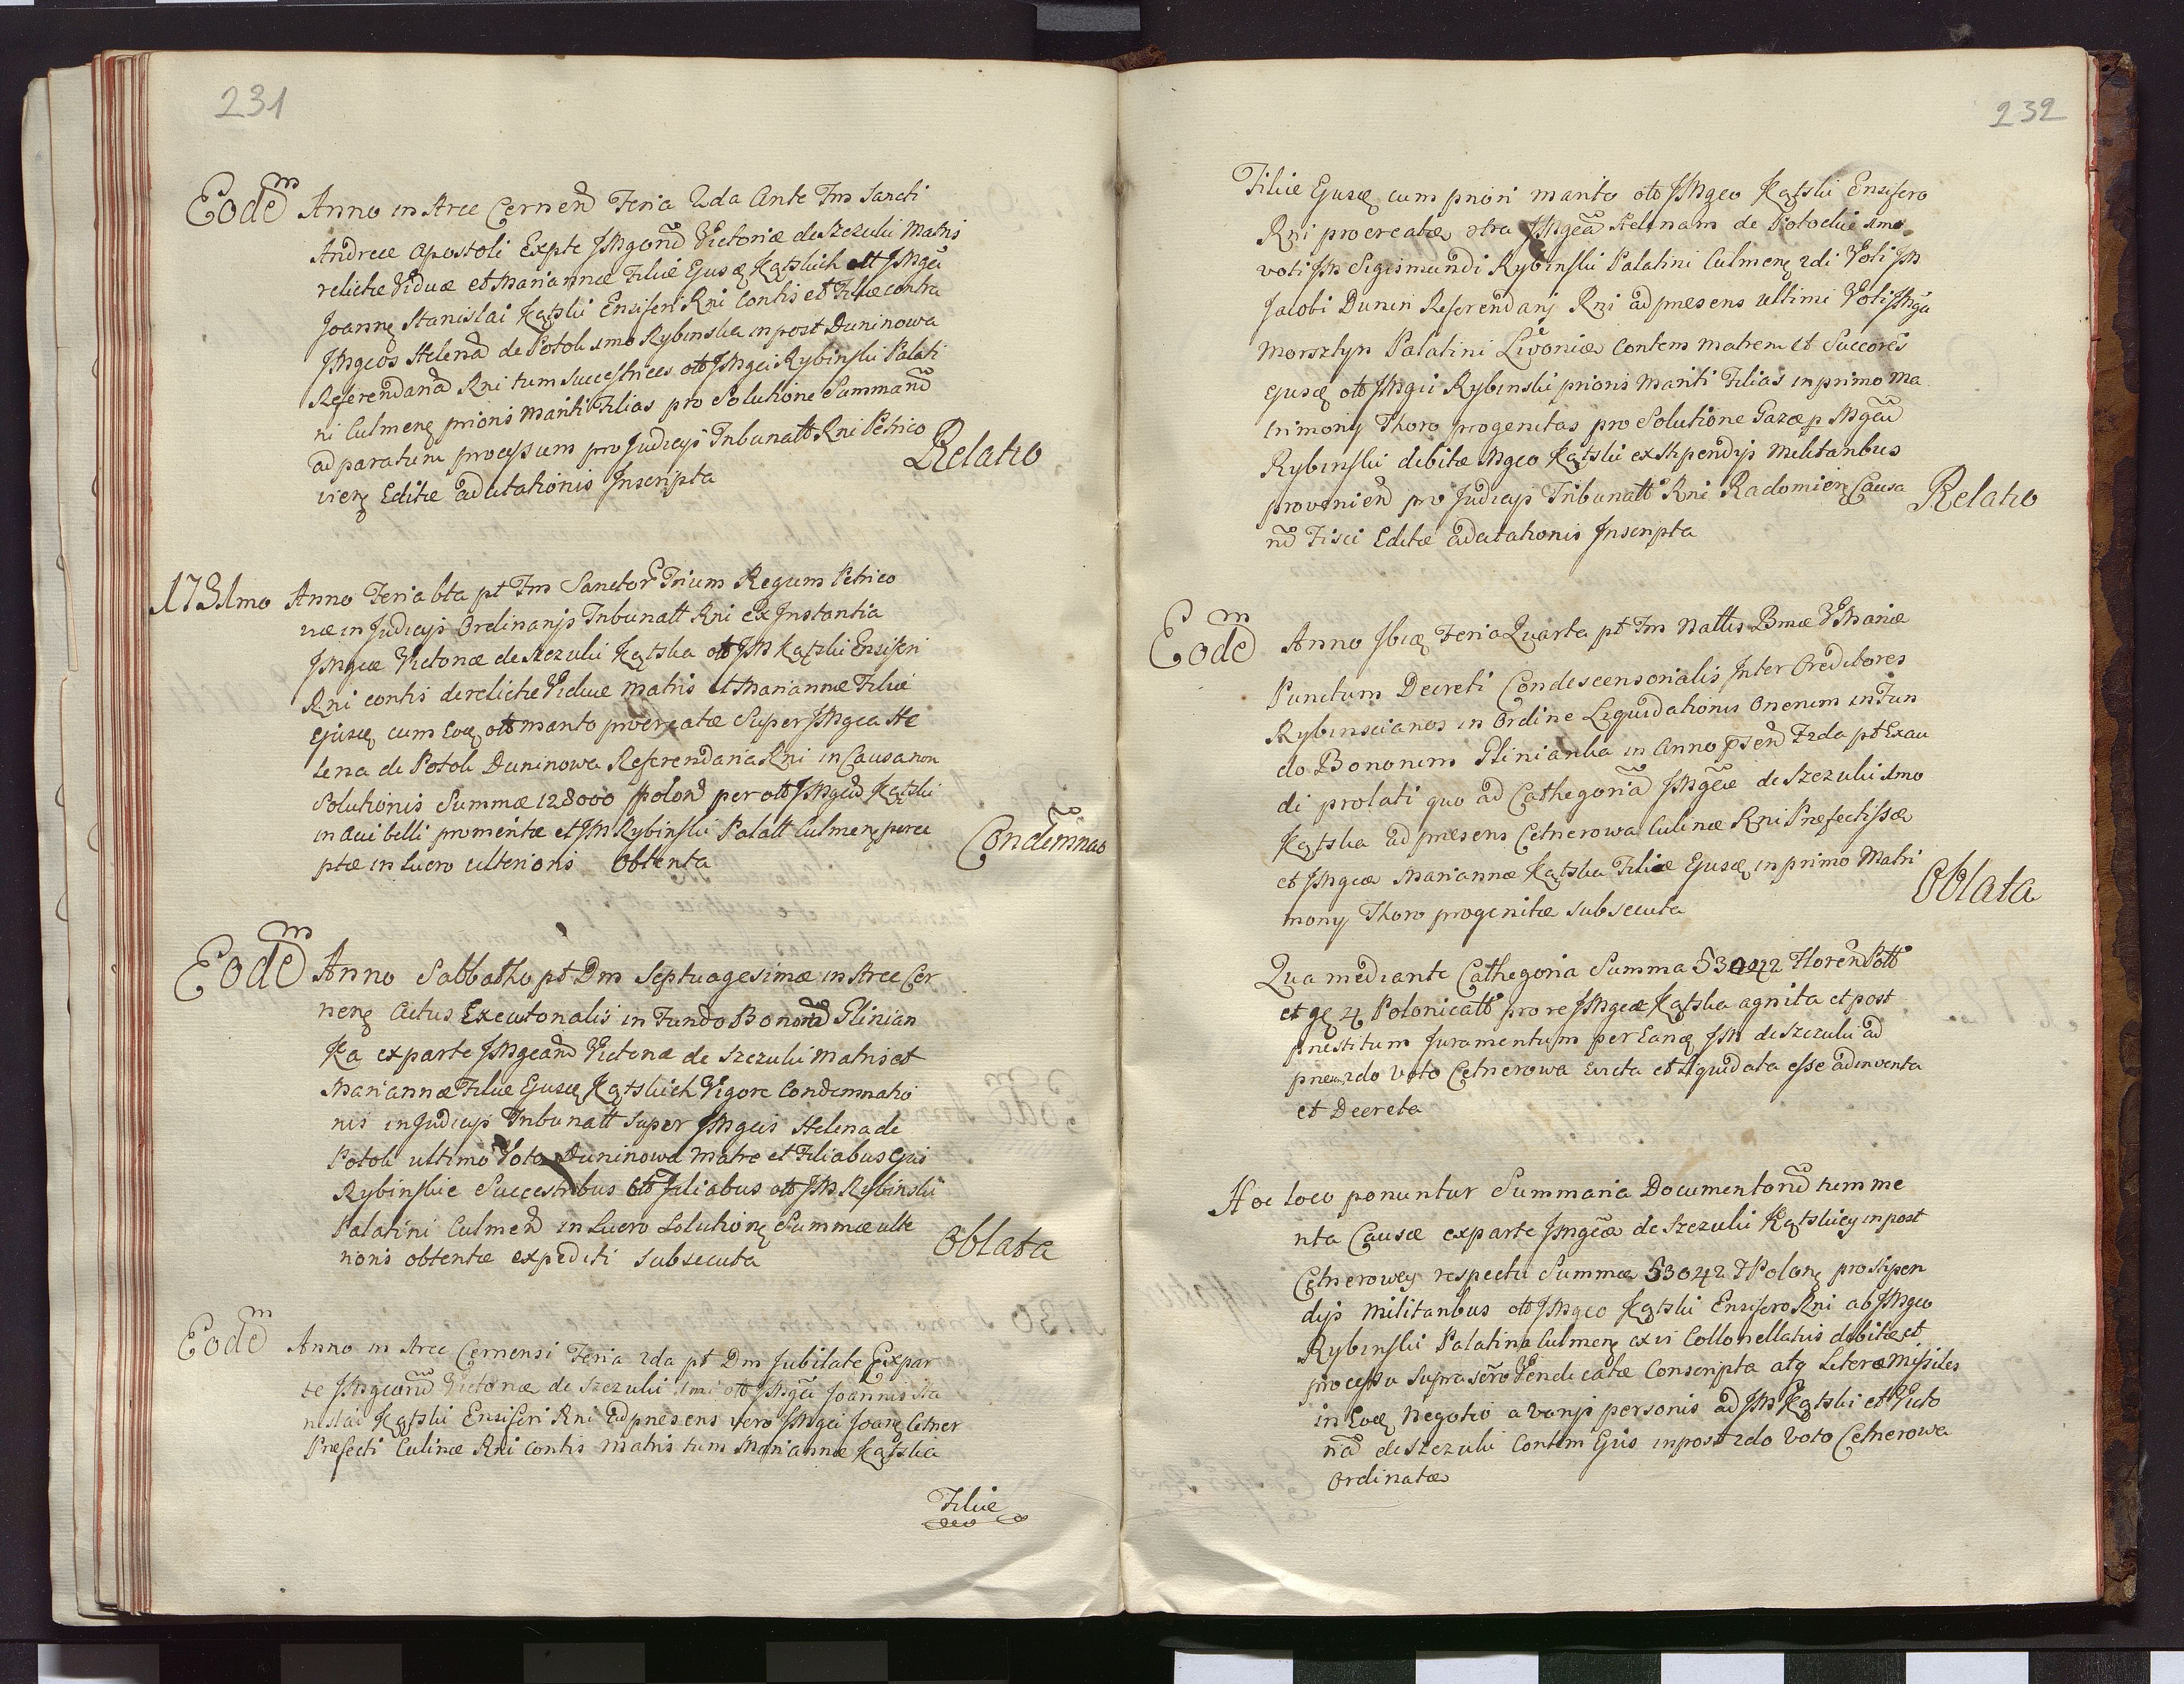 231
Eodem Anno in Arce Cernen̄ Feria 2da Ante Fm Sancti
Andreæ Apostoli Expte JMgcorū Victoriæ de Szczuki Matris
relictæ Viduæ et Mariannæ Filiæ Ejusq Kątskich olt JMgci
Joannę Stanislai Kątski Ensiferi Rni Contis et Filiæ contra
JMgcos Helenā de Potok 1mo Rybinska inpost Duninowa
Referendariā Rni tum Successtrices olt JMgci Rybinski Palati
ni Culmenę prioris Mariti Filias pro Solutione Summarū
ad paratum processum pro Judicijs Tribunatt Rni Petrico
vienę Editæ ad citationis Inscripta
Relatio
1731mo Anno Feria 6ta pt Fm Sanctor Trium Regum Petrico
viæ in Judicijs Ordinarijs Tribunatt Rni ex Instantia
JMgcæ Victoriæ de Szczuki Kątska olt JM Kątski Ensiferi
Rni contis derelictæ Viduæ Matris et Mariannæ Filiæ
Ejusq cum Eoq olt marito procreatæ Super JMgca He
lena de Potok Duninowa Referendaria Rni in Causa non
Solutionis Summæ 128000 polon̄ per olt JMgcū Kątski
in Avi belli promeritæ et JM Rybinski Palatt Culmenę perce
ptæ in Lucro ulterioris Obtenta
Condemnao
Eodem Anno Sabbatho pt Dm Septuagesimæ in Arce Cer
nenę Actus Executorialis in Fundo Bonorū Glinian
Ka ex parte JMgcarū Victoriæ de Szczuki Matris et
Mariannæ Filiæ Ejusq Kątskich Vigore Condemnatio
nis in Judicijs Tribunatt Super JMgcis Helena de
Potok ultimo Voto Duninowa Matre et Filiabus Ejus
Rybinskie Succestribus olt Filiabus olt JM Rybinski
Palatini Culmen̄ in Lucro Solutionę Summæ ulte
rioris obtentæ expediti subsecuta
Oblata
Eodem Anno in Arce Cernensi Feria 2da pt Dm Jubilate Expar
te JMgcarū Victoriæ de Szczuki 1mi olt JMgci Joannis Sta
nislai Kątski Ensiferi Rni ad præsens vero JMgci Joanę Cetner
Præfecti Culinæ Rni contis Matris tum Mariannæ Kątska
Filiæ
232
Filiæ Ejusq cum priori marito olt JMgco Kątski Ensifero
Rni procreatæ ctra JMgcā Helenam de Potockie 1mo
voti JM Sigismundi Rybinski Palatini Culmenę 2di Voti JM
Jacobi Dunin Referendarij Rni ad præsens ultimi Voti JMgci
Morsztyn Palatini Livoniæ Contem Matrem et Succores
Ejusq olt JMgci Rybinski prioris Mariti Filias in primo Ma
trimony Thoro progenitas pro Solutione Gazæ p Mgcū
Rybinski debitæ Mgco Kątski ex Stipendijs Militaribus
provenien̄ pro Judicijs Tribunatt Rni Radomienę Causa
rū Fisci Editæ ad citationis Inscripta
Relatio
Eodem Anno Ibiq Feria Quarta pt Fm Nattis Bmæ V Mariæ
Punctum Decreti Condescensorialis Inter Creditores
Rybinscianos in Ordine Liquidationis Onerum in Fun
do Bonorum Glinianka in Anno pſen̄ F2da pt Exau
di prolati quo ad Cathegoriā JMgcæ de Szczuki 1mo
Kątska ad præsens Cetnerowa Culinæ Rni Præfectissæ
et JMgcæ Mariannæ Kątska Filiæ Ejusq in primo Matri
mony Thoro progenitæ subsecuta
Oblata
Qua mediante Cathegoria Summa 53042 Floren Poll
et gę 4 Polonicall pro re JMgcæ Kątska agnita et post
præstitum Juramentum per Eanq JM de Szczuki ad
præns 2do voto Cetnerowa Evicta et Liquidata esse adinventa
et Decreta
Hoc loco ponuntur Summaria Documentorū tum me
rita Causæ ex parte JMgcæ de Szczuki Kątskiey inpost
Cetnerowey respectu Summæ 53042 F Polonę pro Stipen
dijs Militaribus olt JMgco Kątski Ensifero Rni ab JMgco
Rybinski Palatino Culmenę ex vi Collonellatus debitæ et
processu Supra Sēro Vendicatæ Conscripta atq Literæ Missiles
in Eoq Negotio a varijs personis ad JM Kątski et Victo
riā de Szczuki Contem Ejus inpost 2do Voto Cetnerowa
Ordinatæ